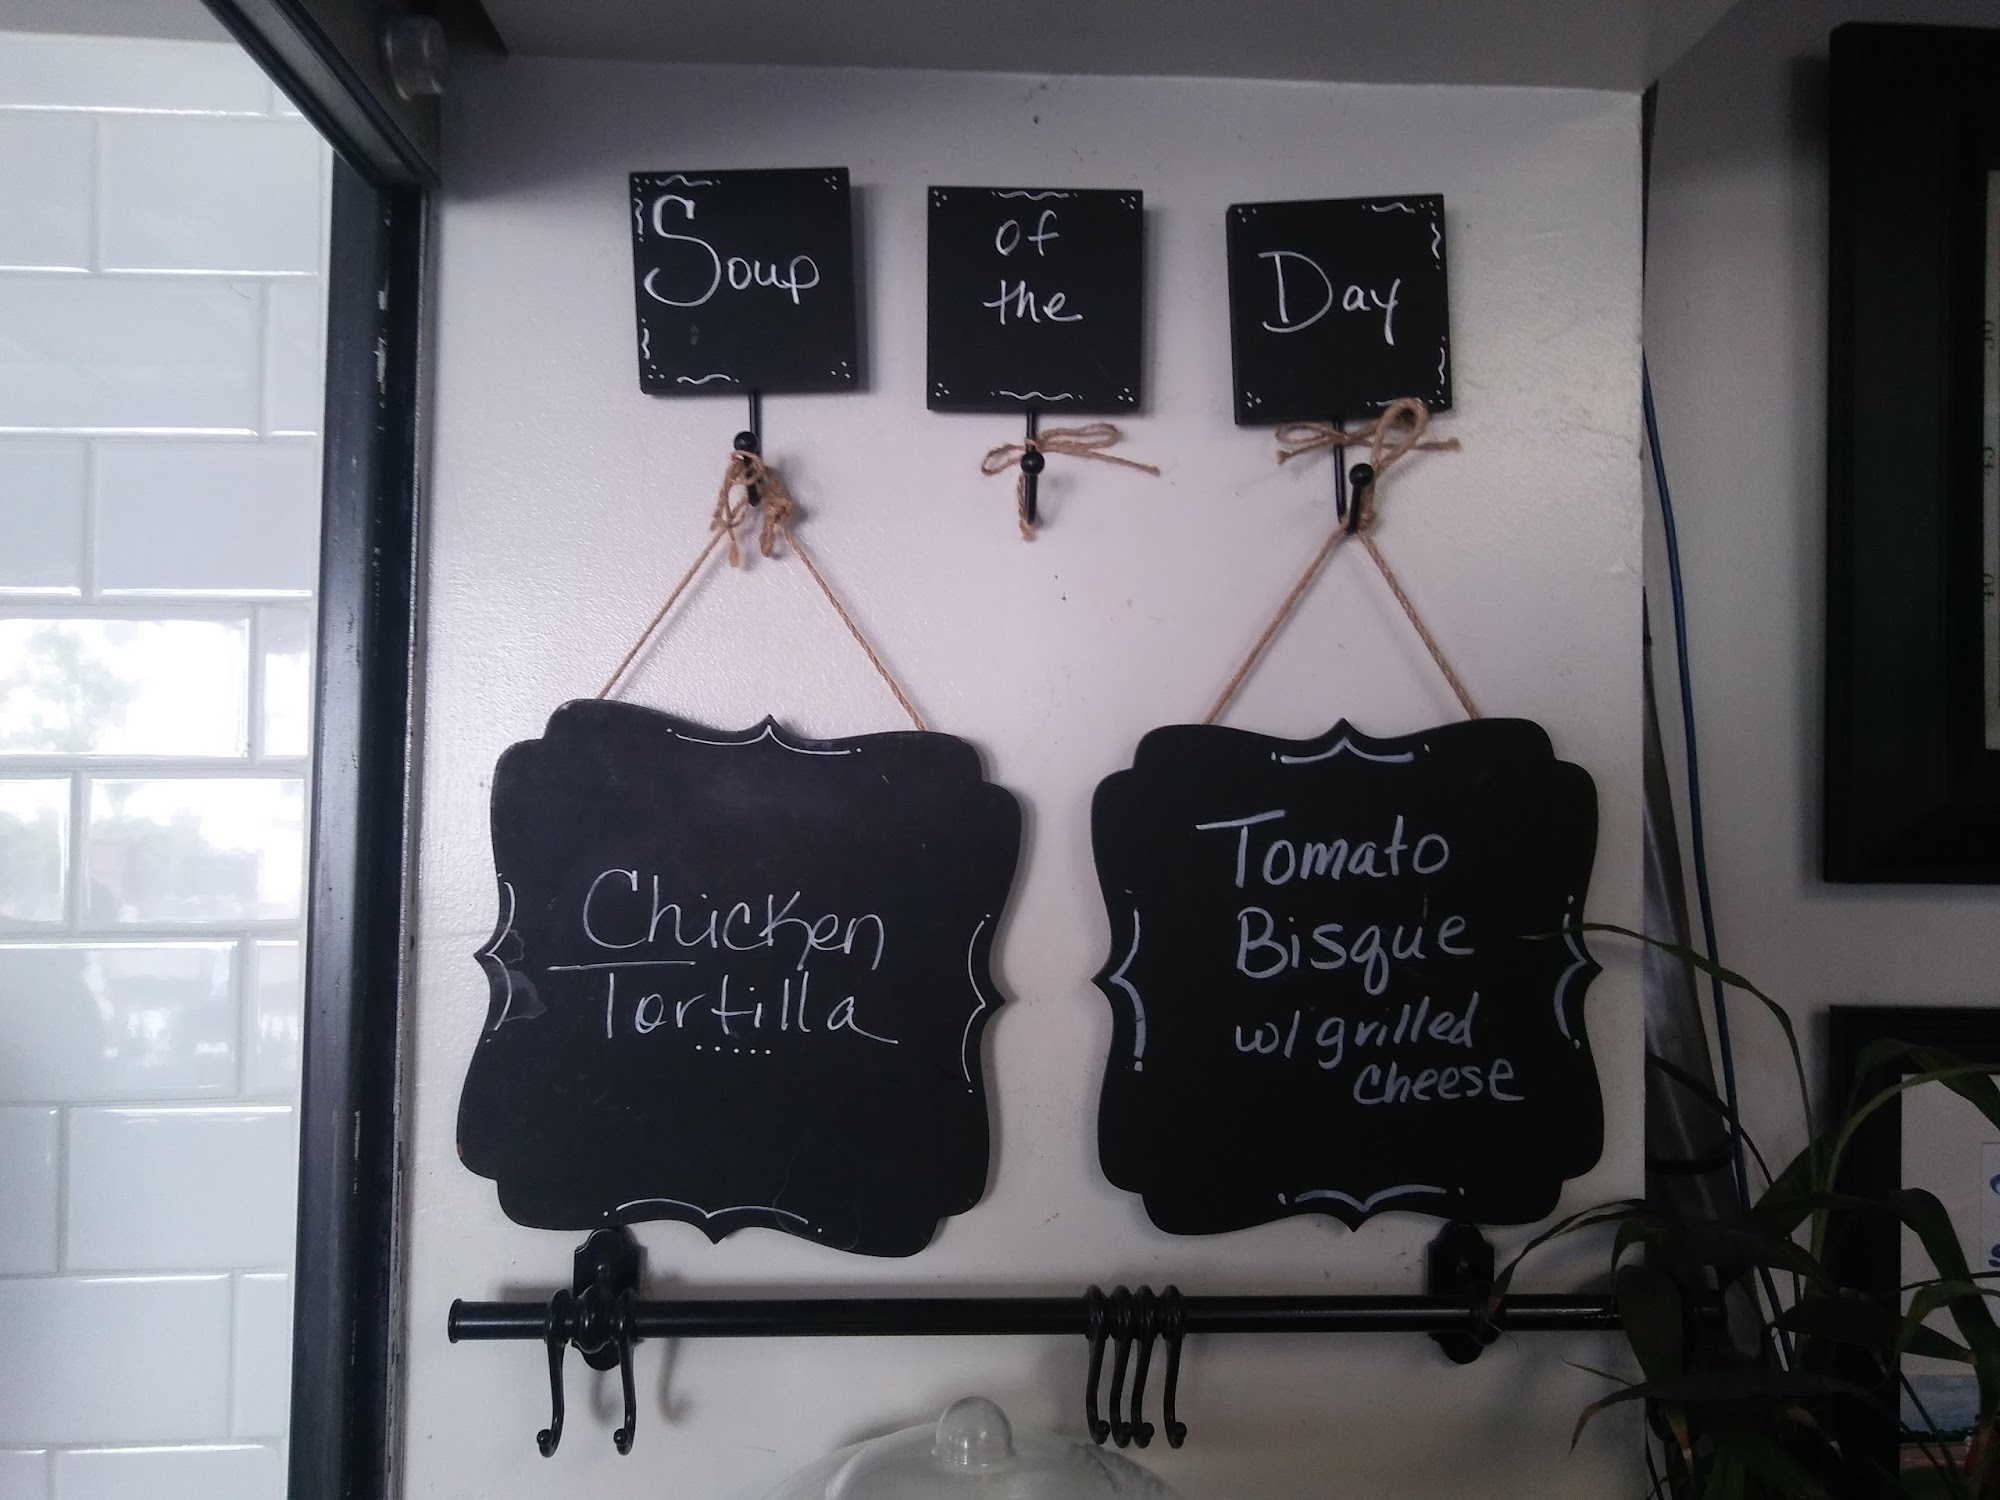 Soup
of
the
Day
Chicken
Tortilla
Tomato
Bisque
w/ grilled
cheese